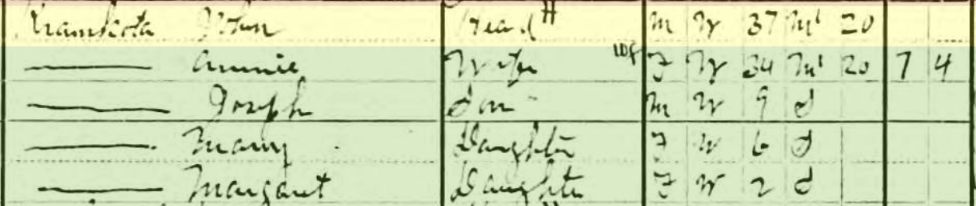 Kramkota John Head H M W 37 M1 20
Annie Wife F W 34 M1 20 7 4
Joseph Son M W 9 S
Mary Daughter F W 6 S
Margaret Daughter F W 2 S